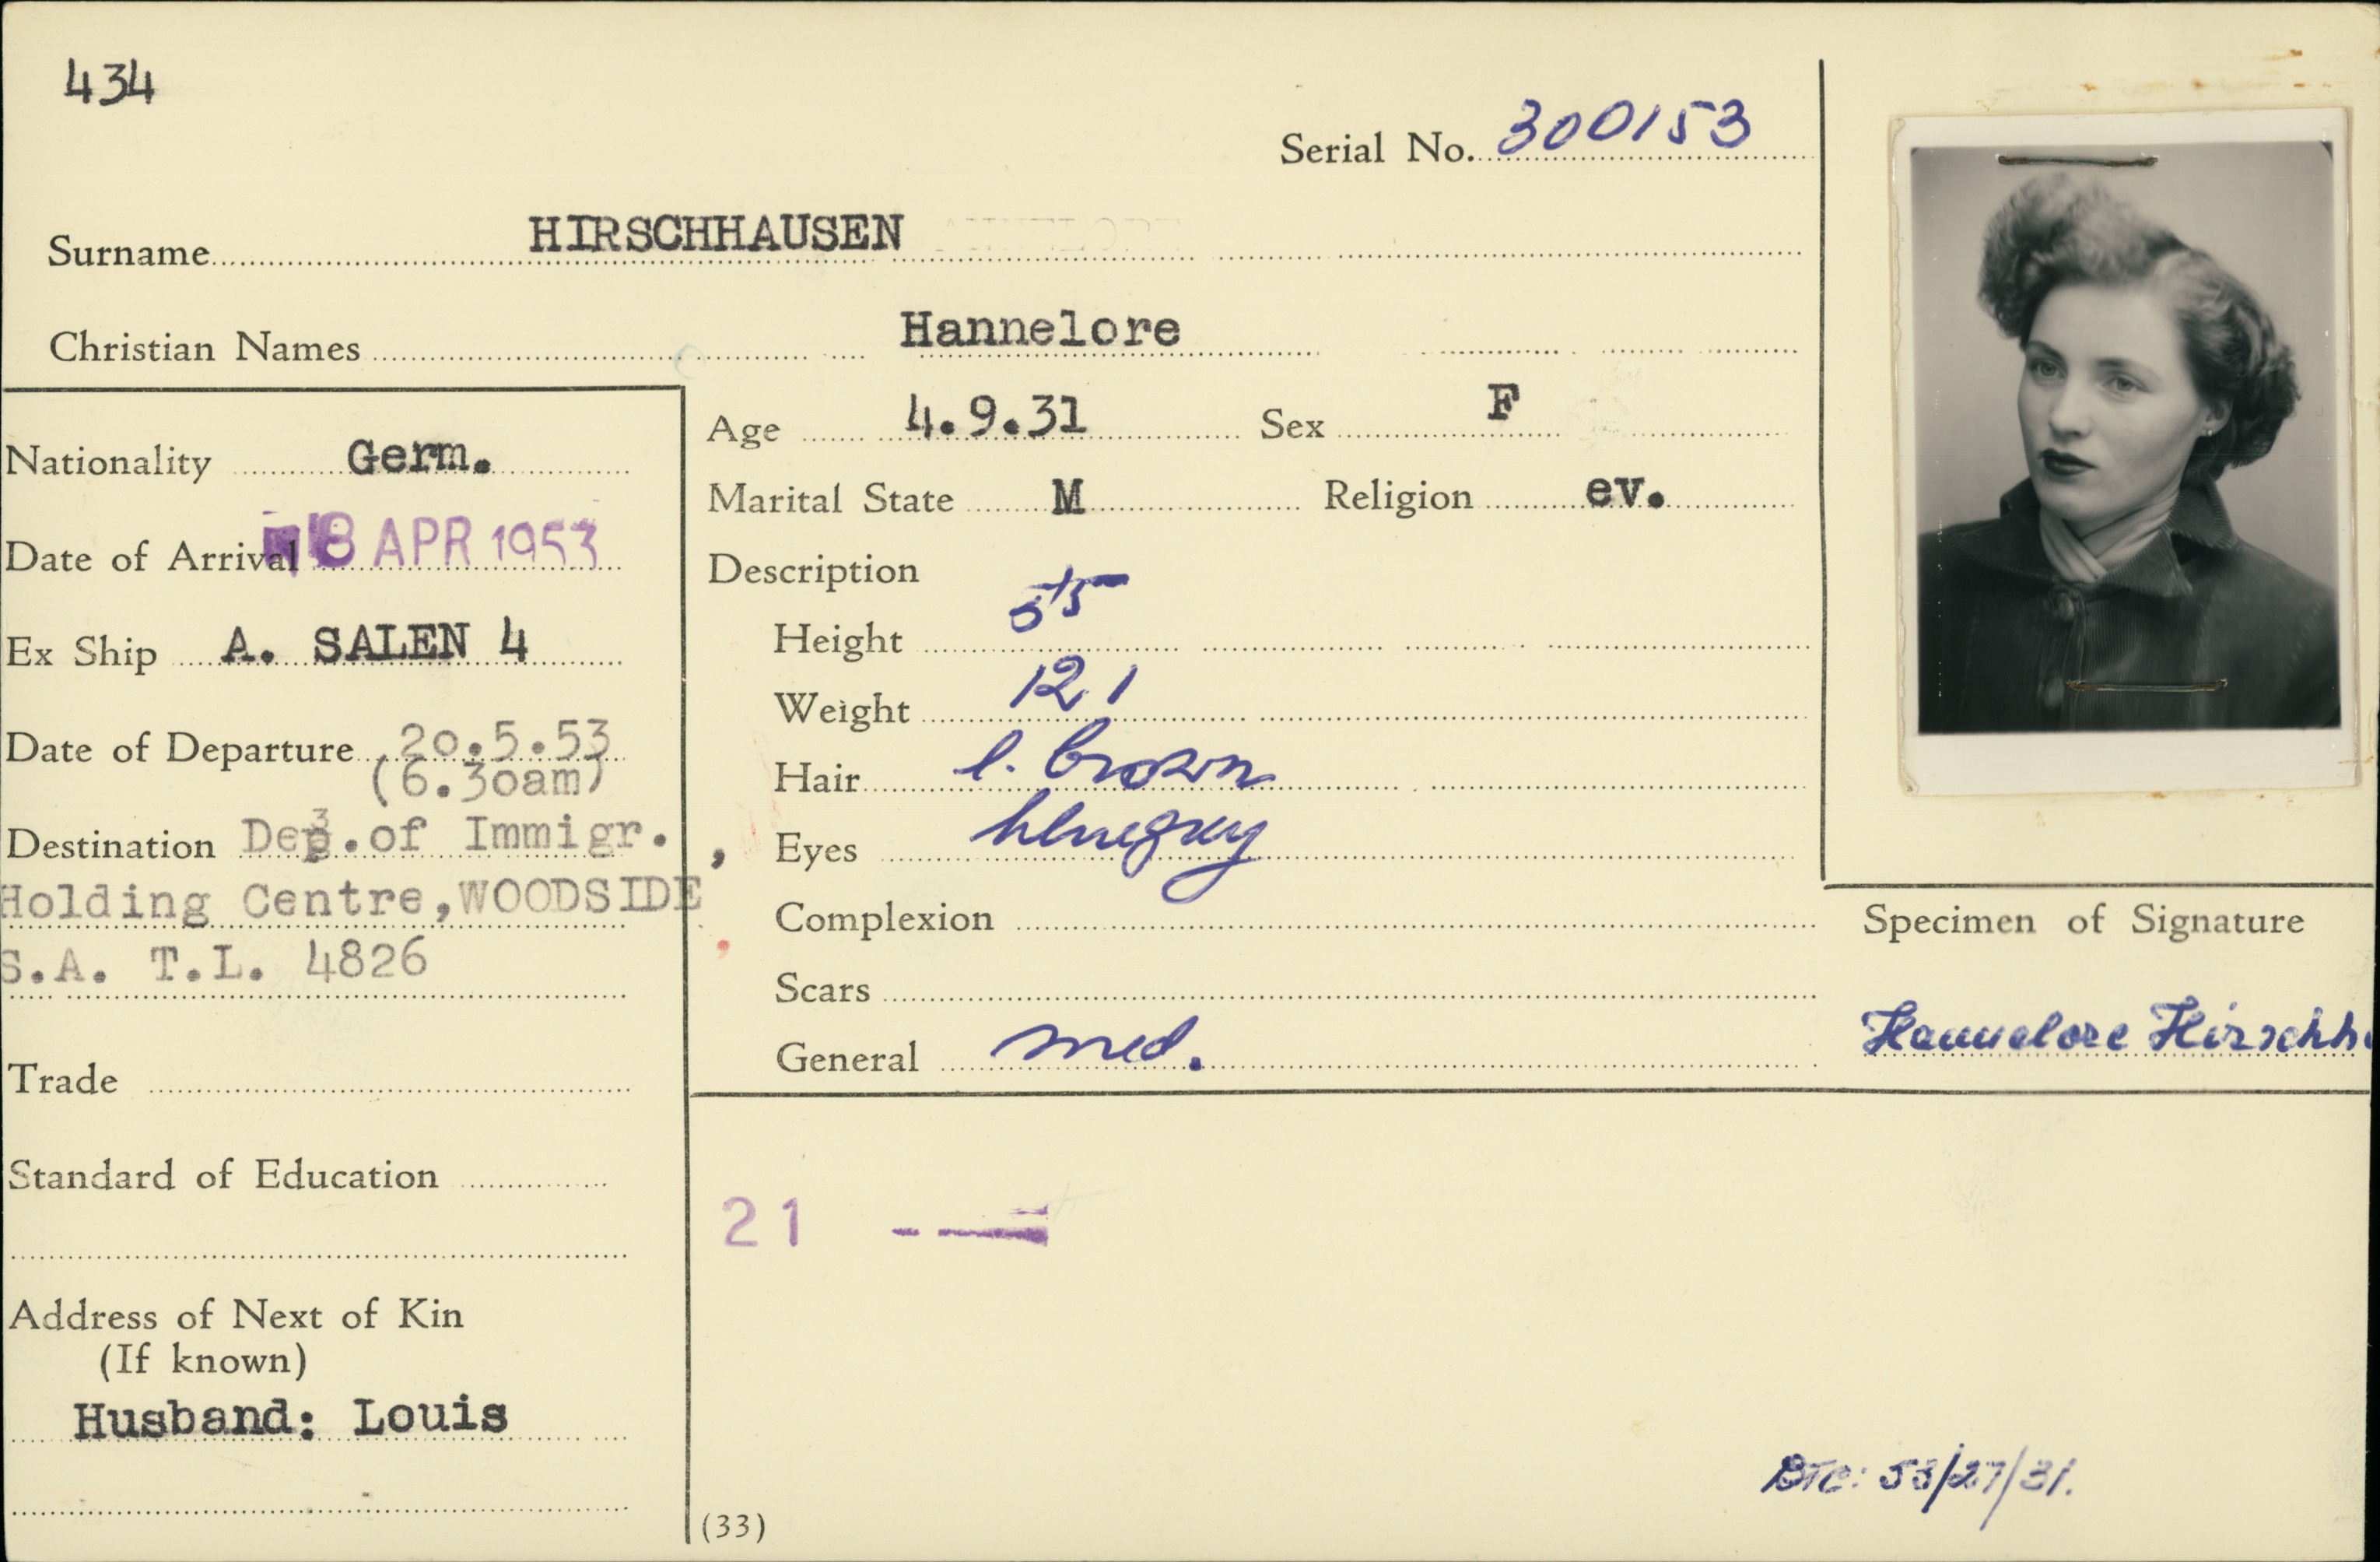 434
Serial No. 300153
Surname HIRSCHHAUSEN
Christian Names Hannelore
Nationality Germ.
Date of Arrival 8 APR 1953
Ex Ship A. SALEN 4
Date of Departure 20.5.53
(6.30am)
Destination Dep.of Immigr.,
Holding Centre,WOODSIDE
S.A. T.L. 4826
Trade
Standard of Education
Address of Next of Kin
(If known)
Husband: Louis
Age 4.9.31 Sex F
Marital State M Religion ev.
Description
Height 5'5
Weight 121
Hair l. brown
Eyes bluegrey
Complexion
Scars
General med.
Specimen of Signature
Hannelore Hirschh
21
BTC: 53/27/31.
(33)